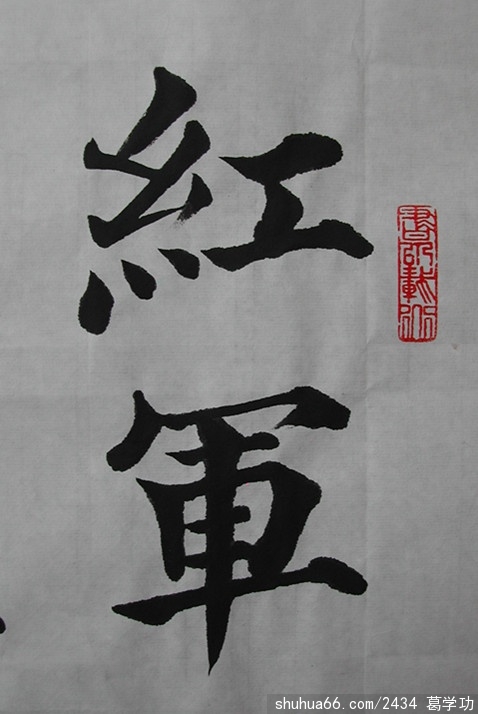 紅
軍
shuhua66.com/2434 葛学功